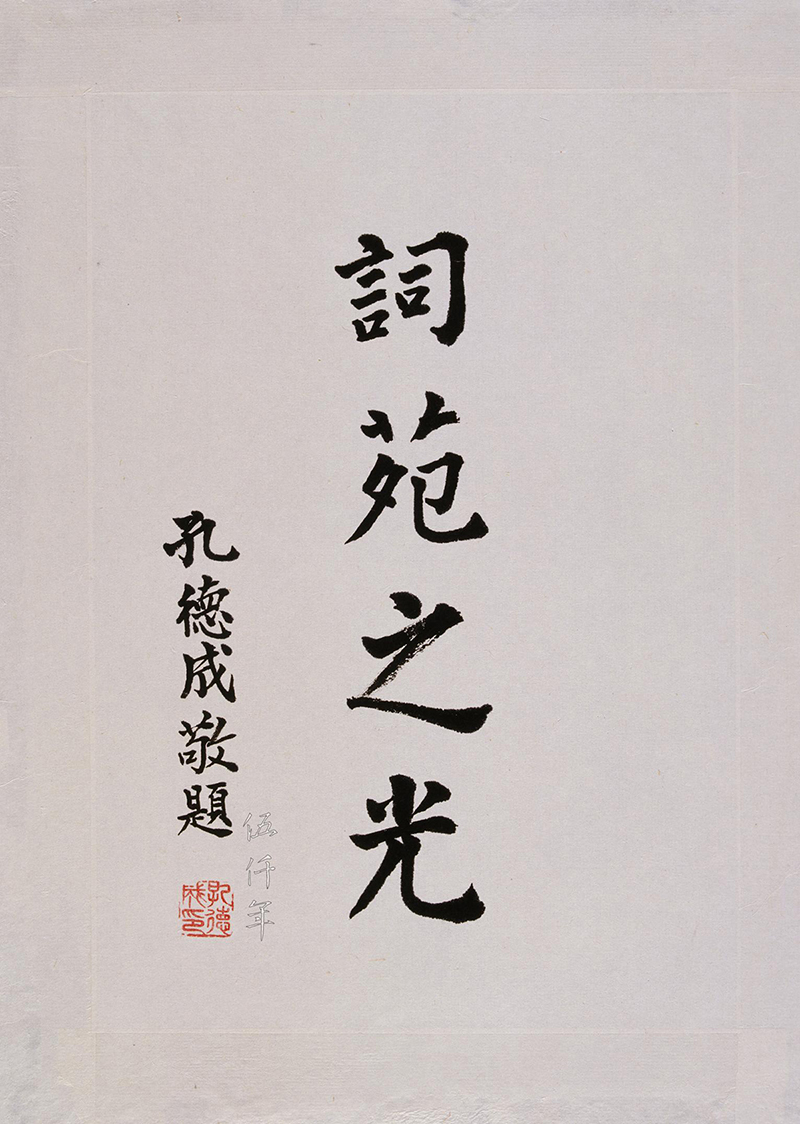 詞苑之光
孔德成敬題
孔德成印
伍仟年